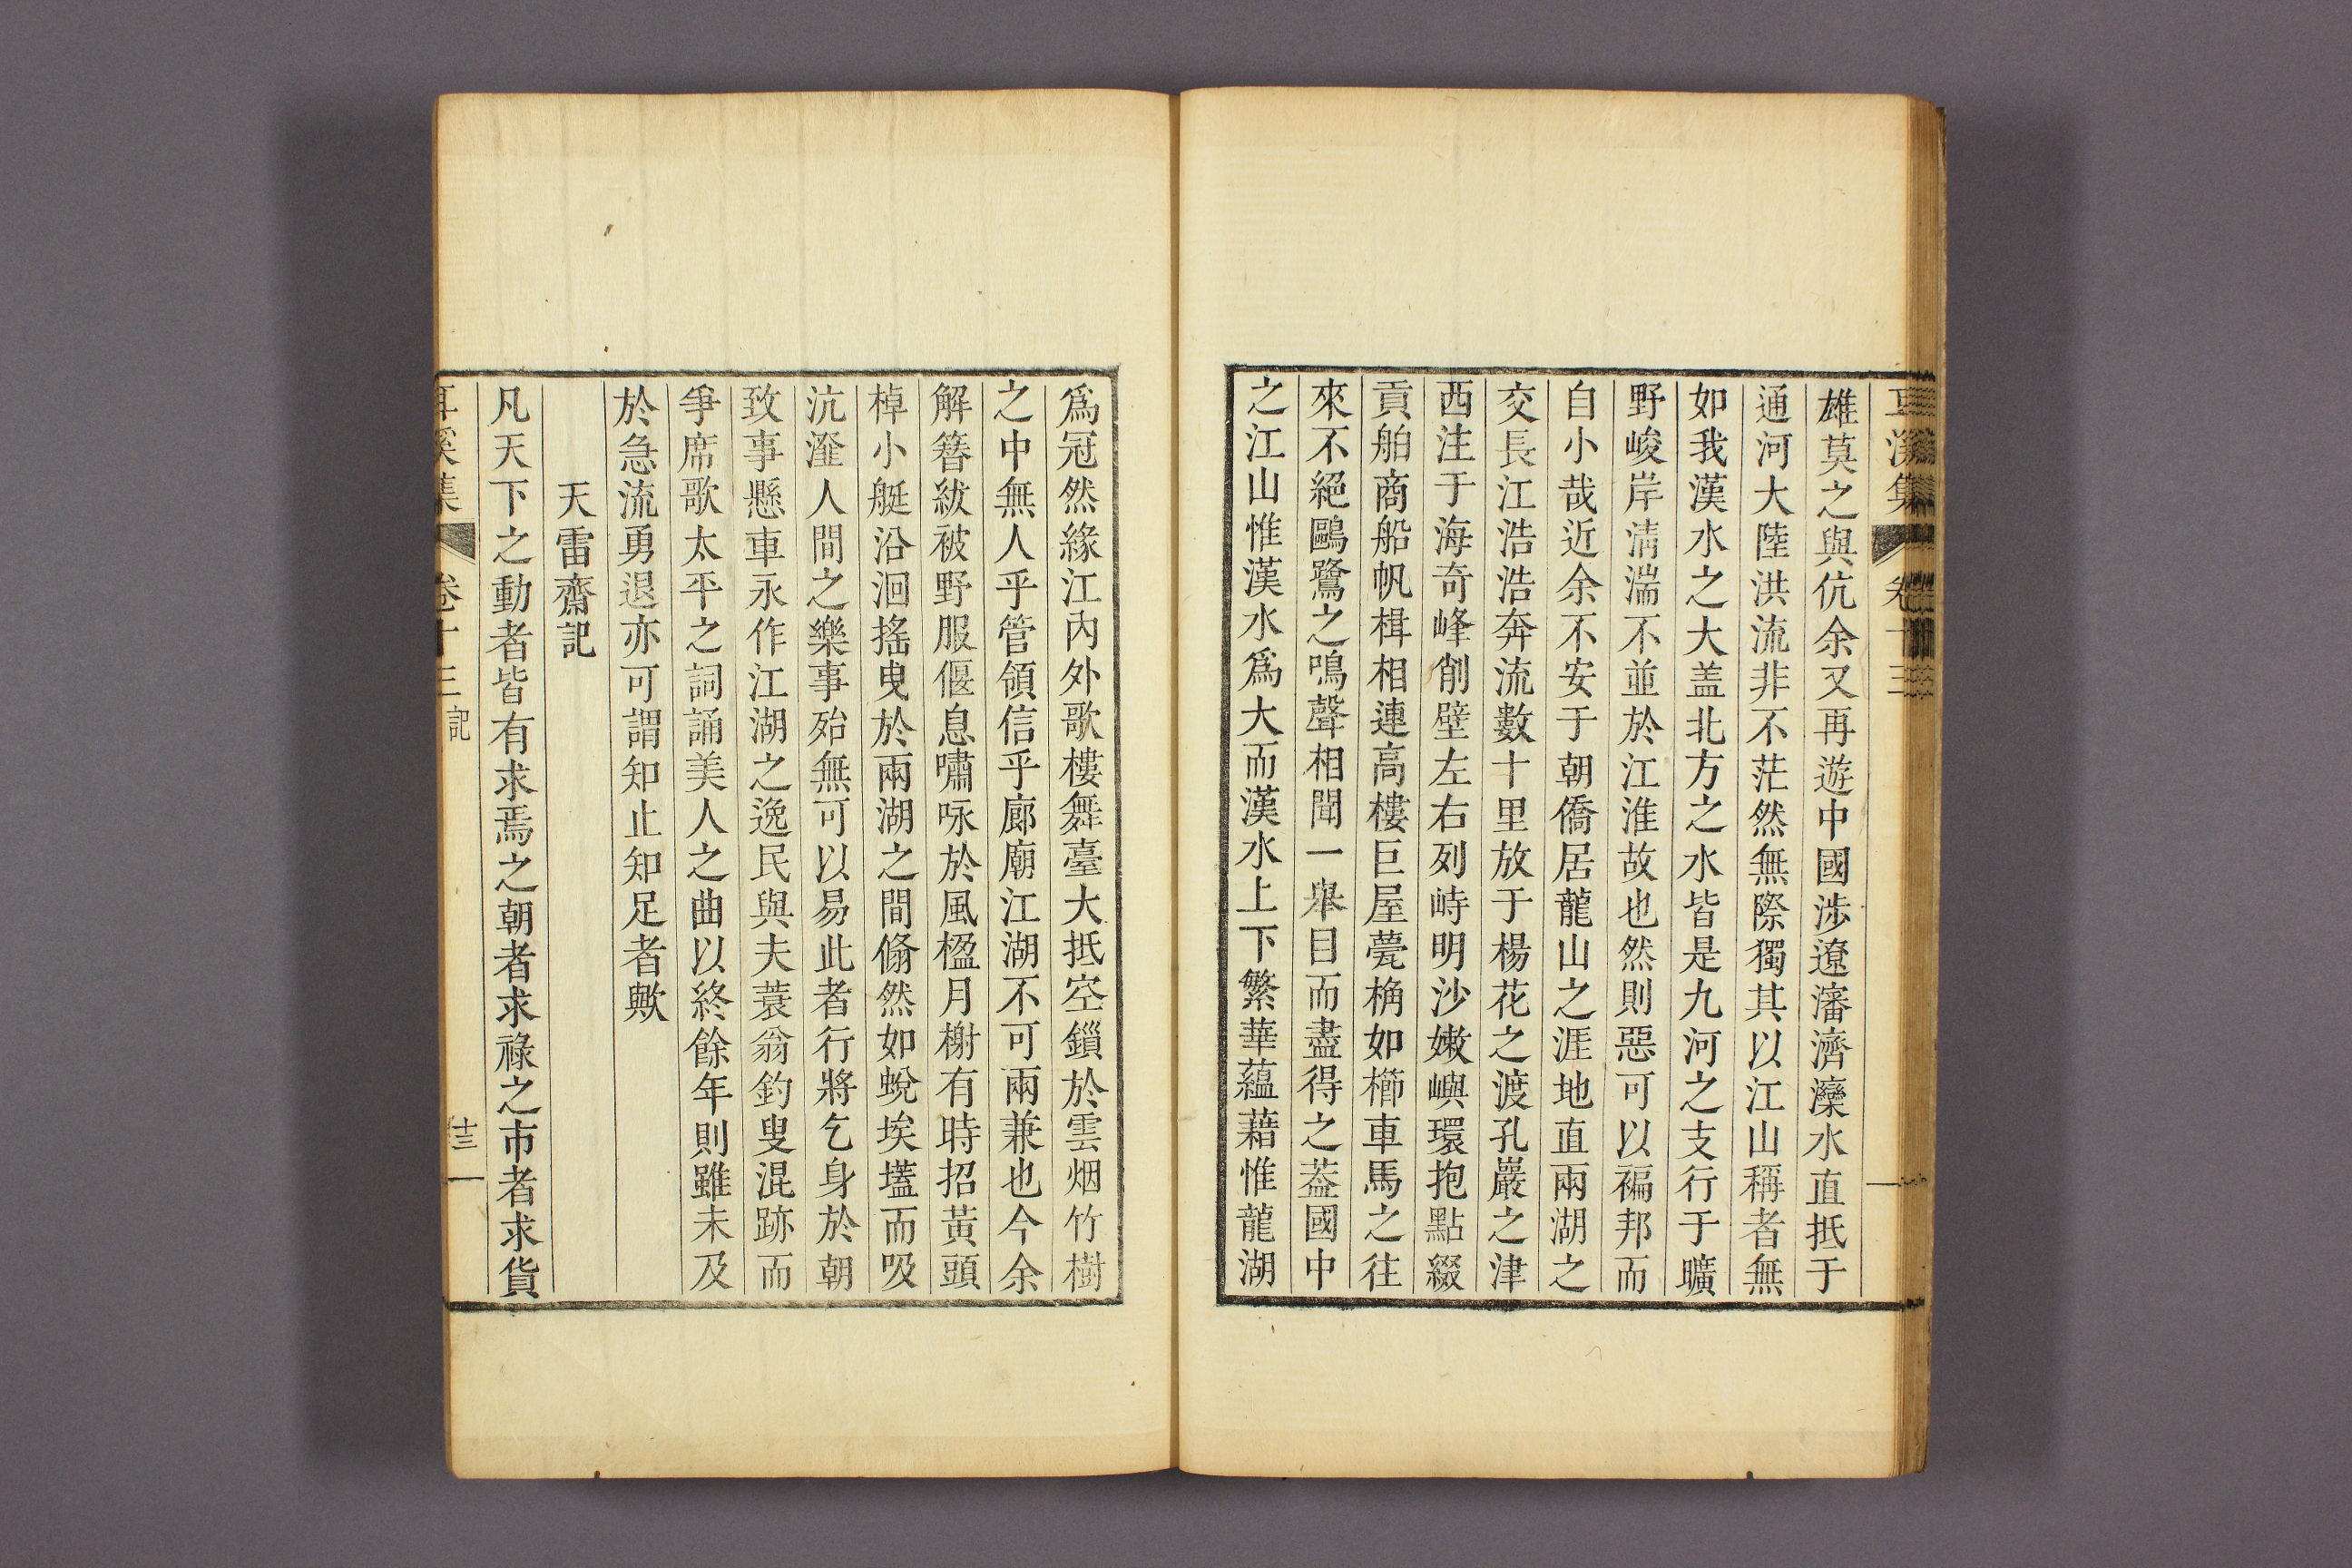 耳溪集 卷十三
雄莫之與伉余又再遊中國涉遼瀋濟灤水直抵于
通河大陸洪流非不茫然無際獨其以江山稱者無
如我漢水之大盖北方之水皆是九河之支行于曠
野峻岸淸湍不並於江淮故也然則惡可以褊邦而
自小哉近余不安于朝僑居龍山之涯地直兩湖之
交長江浩浩奔流數十里放于楊花之渡孔巖之津
西注于海奇峰削壁左右列峙明沙嫩嶼環抱點綴
貢舶商船帆楫相連高樓巨屋甍桷如櫛車馬之往
來不絕鷗鷺之鳴聲相聞一擧目而盡得之葢國中
之江山惟漢水爲大而漢水上下繁華蘊藉惟龍湖
爲冠然緣江內外歌樓舞臺大抵空鎻於雲烟竹樹
之中無人乎管領信乎廊廟江湖不可兩兼也今余
解簪紱被野服偃息嘯咏於風楹月榭有時招黃頭
棹小艇沿洄搖曳於兩湖之間翛然如蛻埃壒而吸
沆瀣人間之樂事殆無可以易此者行將乞身於朝
致事懸車永作江湖之逸民與夫蓑翁釣叟混跡而
爭席歌太平之詞誦美人之曲以終餘年則雖未及
於急流勇退亦可謂知止知足者歟
天雷齋記
凡天下之動者皆有求焉之朝者求祿之市者求貨
耳溪集 卷十三 記 十三